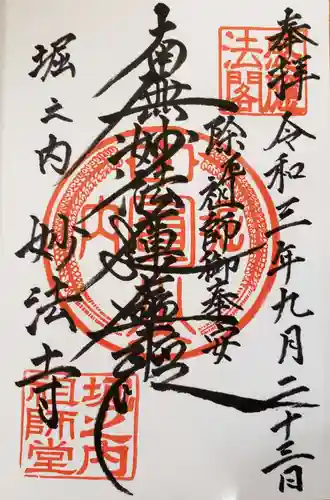 奉拝
令和三年九月二十三日
除厄祖師御奉安
南無妙法蓮華経
堀之内
妙法寺
法閣
堀之内
祖師堂